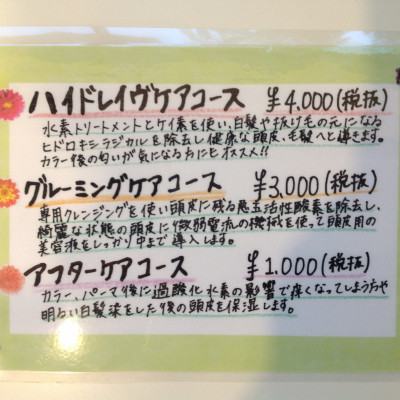 ハイドレイヴケアコース ¥4,000(税抜)
水素トリートメントとケイ素を使い、白髪や抜け毛の元になる
ヒドロキシラジカルを除去し健康な頭皮、毛髪へと導きます。
カラー後の匂いが気になる方にもオススメ!!
グルーミングケアコース ¥3,000(税抜)
専用クレンジングを使い頭皮に残る悪玉活性酸素を除去し、
綺麗な状態の頭皮に微弱電流の機械を使って頭皮用の
美容液をしっかり中まで導入します。
アフターケアコース ¥1,000(税抜)
カラー、パーマ後に過酸化水素の影響で痒くなってしまう方や
明るい白髪染をした後の頭皮を保湿します。